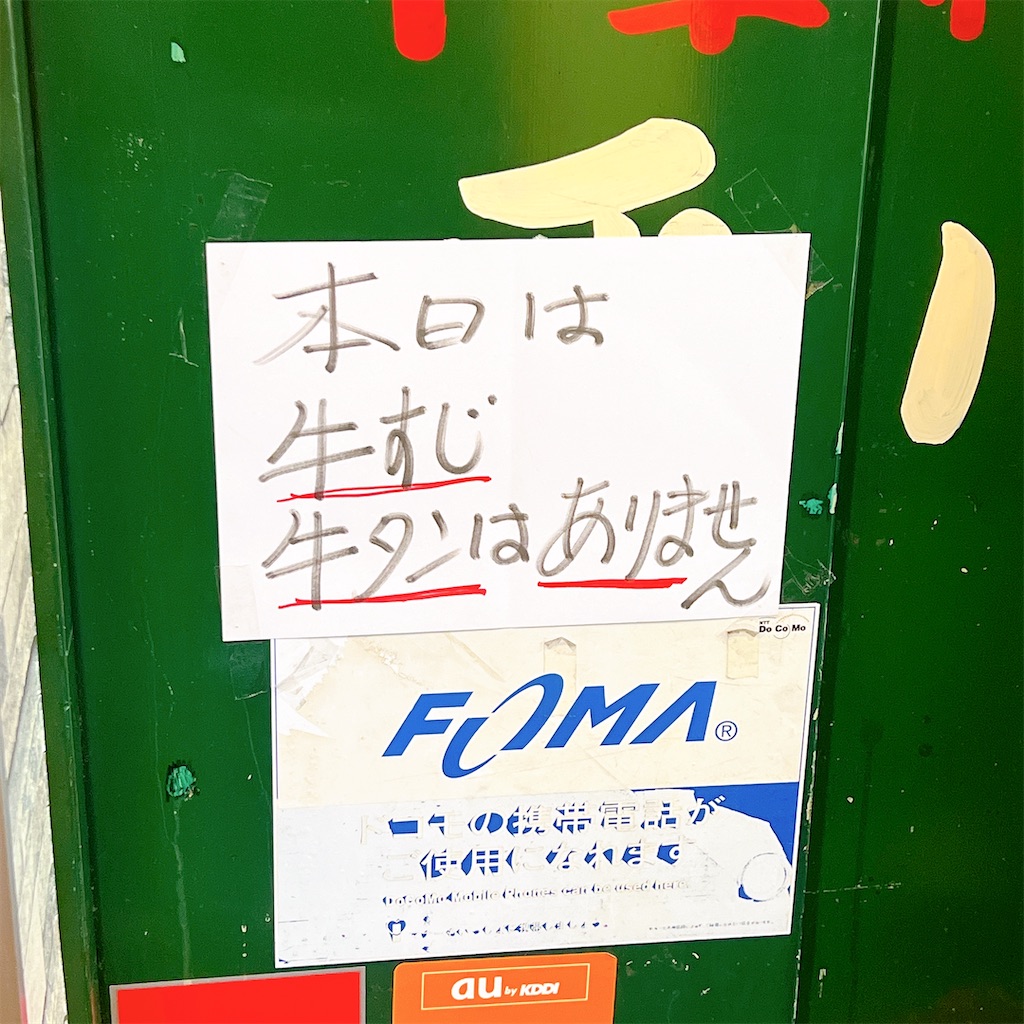 本日は
牛すじ
牛タンはありません
NTT
Do Co Mo
FOMA®
ドコモの携帯電話が
ご使用になれます
DoCoMo Mobile Phones can be used here.
au by KDDI